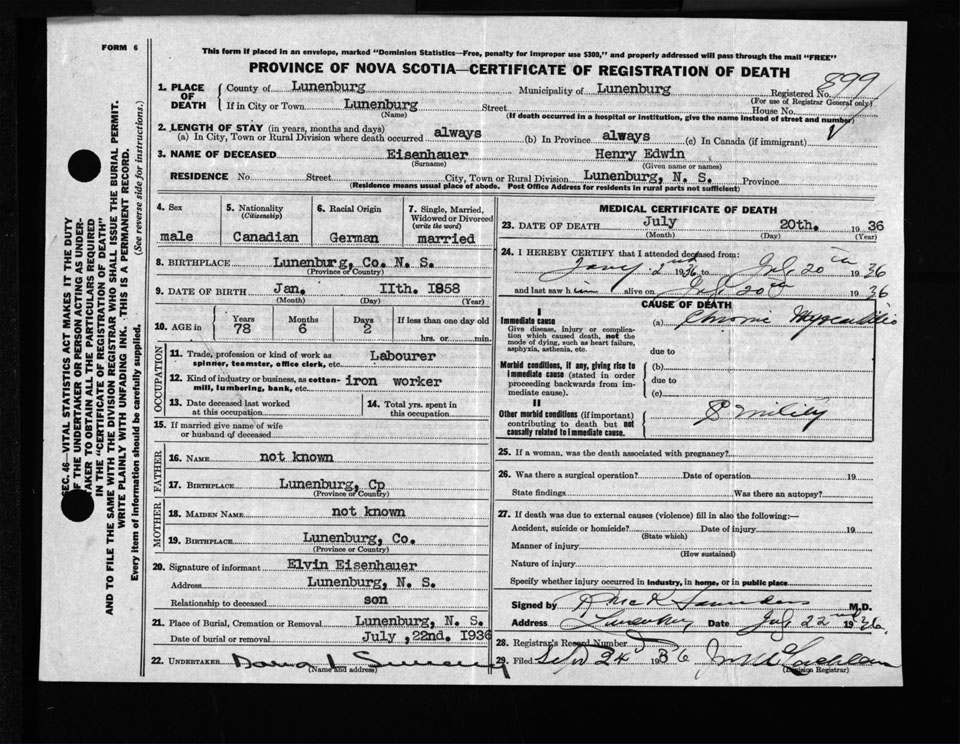 FORM 6
This form if placed in an envelope, marked "Dominion Statistics—Free, penalty for improper use $300," and properly addressed will pass through the mail "FREE"
PROVINCE OF NOVA SCOTIA—CERTIFICATE OF REGISTRATION OF DEATH
899
1. PLACE OF DEATH
County of Lunenburg Municipality of Lunenburg Registered No.
(For use of Registrar General only)
If in City or Town Lunenburg Street House No.
(Name) (If death occurred in a hospital or institution, give the name instead of street and number)
2. LENGTH OF STAY (in years, months and days)
(a) In City, Town or Rural Division where death occurred always (b) In Province always (c) In Canada (if immigrant)
3. NAME OF DECEASED Eisenhauer Henry Edwin
(Surname) (Given name or names)
RESIDENCE No. Street City, Town or Rural Division Lunenburg, N. S. Province
(Residence means usual place of abode. Post Office Address for residents in rural parts not sufficient)
SEC. 46—VITAL STATISTICS ACT MAKES IT THE DUTY
OF THE UNDERTAKER OR PERSON ACTING AS UNDER-
TAKER TO OBTAIN ALL THE PARTICULARS REQUIRED
IN THE "CERTIFICATE OF REGISTRATION OF DEATH"
AND TO FILE THE SAME WITH THE DIVISION REGISTRAR WHO SHALL ISSUE THE BURIAL PERMIT.
WRITE PLAINLY WITH UNFADING INK. THIS IS A PERMANENT RECORD.
Every item of information should be carefully supplied. (See reverse side for instructions.)
4. Sex
male
5. Nationality
(Citizenship)
Canadian
6. Racial Origin
German
7. Single, Married, Widowed or Divorced
(write the word)
married
8. BIRTHPLACE Lunenburg, Co. N. S.
(Province or Country)
9. DATE OF BIRTH Jan. IIth. I858
(Month) (Day) (Year)
10. AGE in
Years Months Days If less than one day old
78 6 2 hrs. or min.
OCCUPATION
11. Trade, profession or kind of work as Labourer
spinner, teamster, office clerk, etc.
12. Kind of industry or business, as cotton- iron worker
mill, lumbering, bank, etc.
13. Date deceased last worked at this occupation
14. Total yrs. spent in this occupation
15. If married give name of wife
or husband of deceased
FATHER
16. NAME not known
17. BIRTHPLACE Lunenburg, Cp
(Province or Country)
MOTHER
18. MAIDEN NAME not known
19. BIRTHPLACE Lunenburg, Co.
(Province or Country)
20. Signature of informant Elvin Eisenhauer
Address Lunenburg, N. S.
Relationship to deceased son
21. Place of Burial, Cremation or Removal Lunenburg, N. S.
Date of burial or removal July ,22nd. 1936
22. UNDERTAKER
(Name and address)
MEDICAL CERTIFICATE OF DEATH
23. DATE OF DEATH July 20th. 19 36
(Month) (Day) (Year)
24. I HEREBY CERTIFY that I attended deceased from:
Jany 2nd 1936 to July 20th 1936
and last saw him alive on July 20th 1936
CAUSE OF DEATH
I
Immediate cause
Give disease, injury or complica-
tion which caused death, not the
mode of dying, such as heart failure,
asphyxia, asthenia, etc.
(a) Chronic Myocarditis
due to
Morbid conditions, if any, giving rise to
immediate cause (stated in order
proceeding backwards from im-
mediate cause).
(b)
due to
(c)
II
Other morbid conditions (if important)
contributing to death but not
causally related to immediate cause.
Senility
25. If a woman, was the death associated with pregnancy?
26. Was there a surgical operation? Date of operation 19
State findings Was there an autopsy?
27. If death was due to external causes (violence) fill in also the following:—
Accident, suicide or homicide? Date of injury 19
(State which)
Manner of injury
(How sustained)
Nature of injury
Specify whether injury occurred in industry, in home, or in public place
Signed by Saunders M.D.
Address Lunenburg Date July 22nd 1936
28. Registrar's Record Number
29. Filed Sept 24 1936
(Division Registrar)